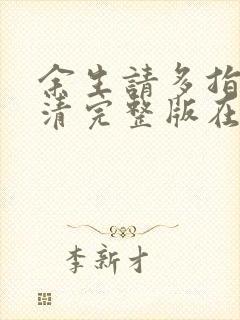 余生請多指
清完整版在
李新才